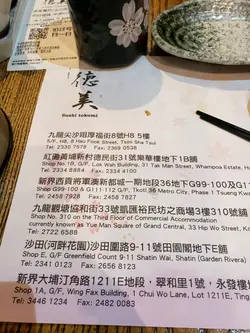 德
美
Sushi tokumi
九龍尖沙咀厚福街8號H8 5樓
5/F, H8, 8 Hau Fook Street, Tsim Sha Tsui
Tel: 2330 7578 Fax: 2369 0538
紅磡黃埔新村德民街31號樂華樓地下1B舖
Shop No. 1B, G/F, Lok Wah Building, 31 Tak Man Street, Whampoa Estate,
Tel: 2334 8884 Fax: 2334 4100
新界西貢將軍澳新都城一期地段36地下G99-100及G1
Shop G99-100 & G111-112 G/F, The Metro City, Phase 1 Tseung Kwan O
Tel: 2721 7077 Fax:
九龍觀塘協和街33號凱匯裕民坊之商場3樓310號舖
Shop No. 310 on the Third Floor of Commercial Accommodation
currently known as Yue Man Square of Grand Central, 33 Hip Wo Street,
Tel: 2722 6588
沙田(河畔花園)沙田圍路9-11號田園閣地下E舖
Shop E, G/F Greenfield Court 9-11 Shatin Wai, Shatin (Garden Rivera)
Tel: 2341 0123 Fax: 2656 2256
新界大埔汀角路1211E地段，翠和里1號，永發樓
Shop 1A, G/F, Wing Fax Building, 1 Chui Wo Lane, Lot 1211E, Ting
Tel: 3446 1234 Fax: 2482 0083